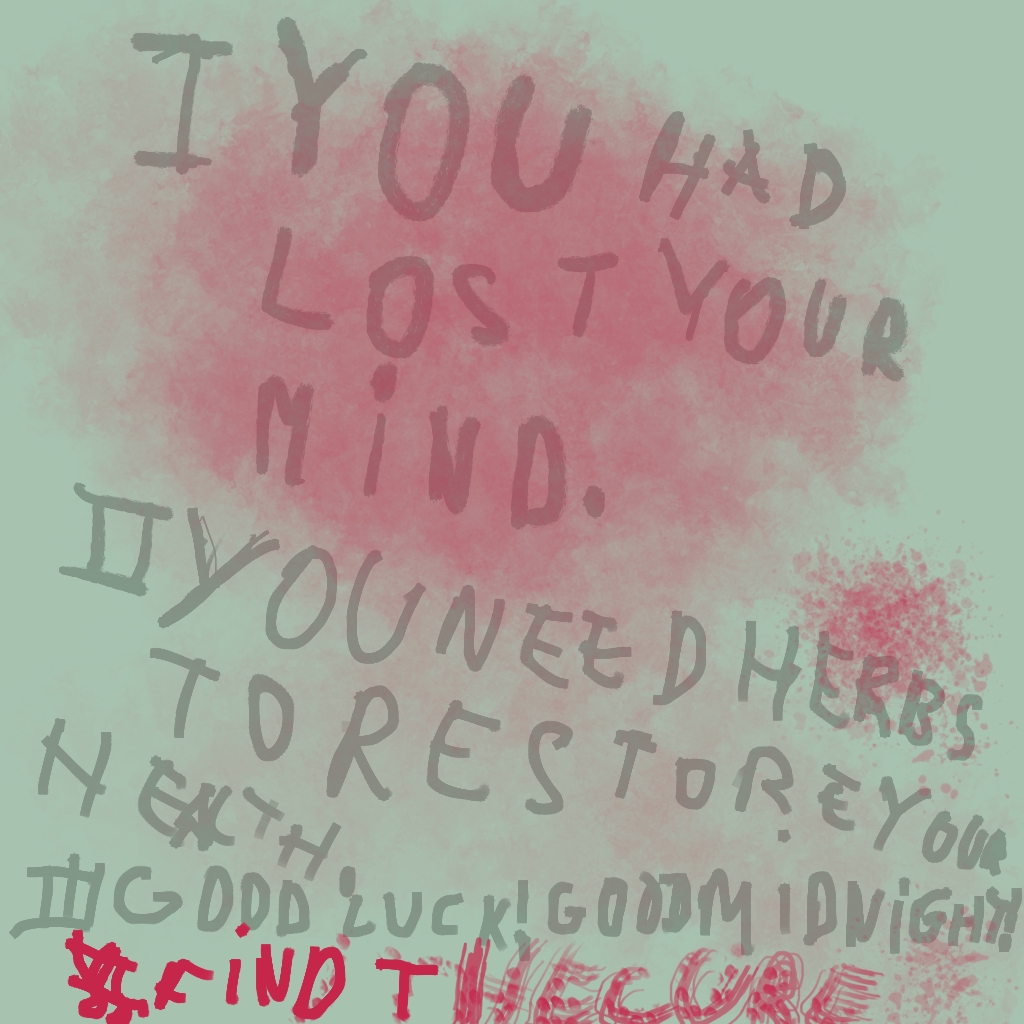 I YOU HAD
LOST YOUR
MiND.
II YOU NEED HERBS
TO RESTORE YOUR
HEALTH.
III GOOD LUCK! GOOD MIDNiGHT!
FiND THE CURE